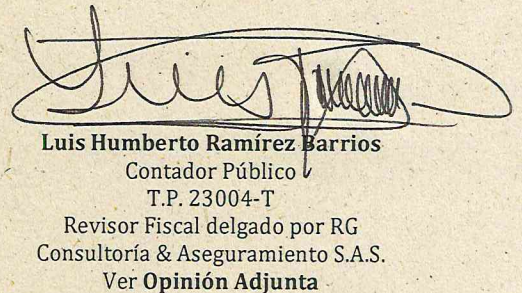 Luis Humberto Ramírez Barrios
Contador Público
T.P. 23004-T
Revisor Fiscal delgado por RG
Consultoría & Aseguramiento S.A.S.
Ver Opinión Adjunta